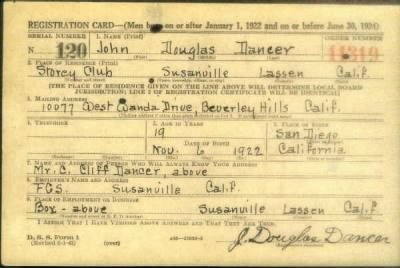 REGISTRATION CARD—(Men born on or after January 1, 1922 and on or before June 30, 1924)
SERIAL NUMBER 1. NAME (Print) ORDER NUMBER
N 120 John Douglas Dancer 11319
(First) (Middle) (Last)
2. PLACE OF RESIDENCE (Print)
Storey Club Susanville Lassen Calif.
[THE PLACE OF RESIDENCE GIVEN ON THE LINE ABOVE WILL DETERMINE LOCAL BOARD
JURISDICTION; LINE 2 OF REGISTRATION CERTIFICATE WILL BE IDENTICAL]
3. MAILING ADDRESS
10077 West Wanda Drive, Beverley Hills Calif.
4. TELEPHONE 5. AGE IN YEARS 6. PLACE OF BIRTH
19 San Diego
DATE OF BIRTH
Nov. 6 1922 California
7. NAME AND ADDRESS OF PERSON WHO WILL ALWAYS KNOW YOUR ADDRESS
Mr. C. Cliff Dancer, above
8. EMPLOYER'S NAME AND ADDRESS
F.G.S. Susanville Calif.
9. PLACE OF EMPLOYMENT OR BUSINESS
Box - above Susanville Lassen Calif.
I AFFIRM THAT I HAVE VERIFIED ABOVE ANSWERS AND THAT THEY ARE TRUE.
D. S. S. Form 1
(over) J. Douglas Dancer